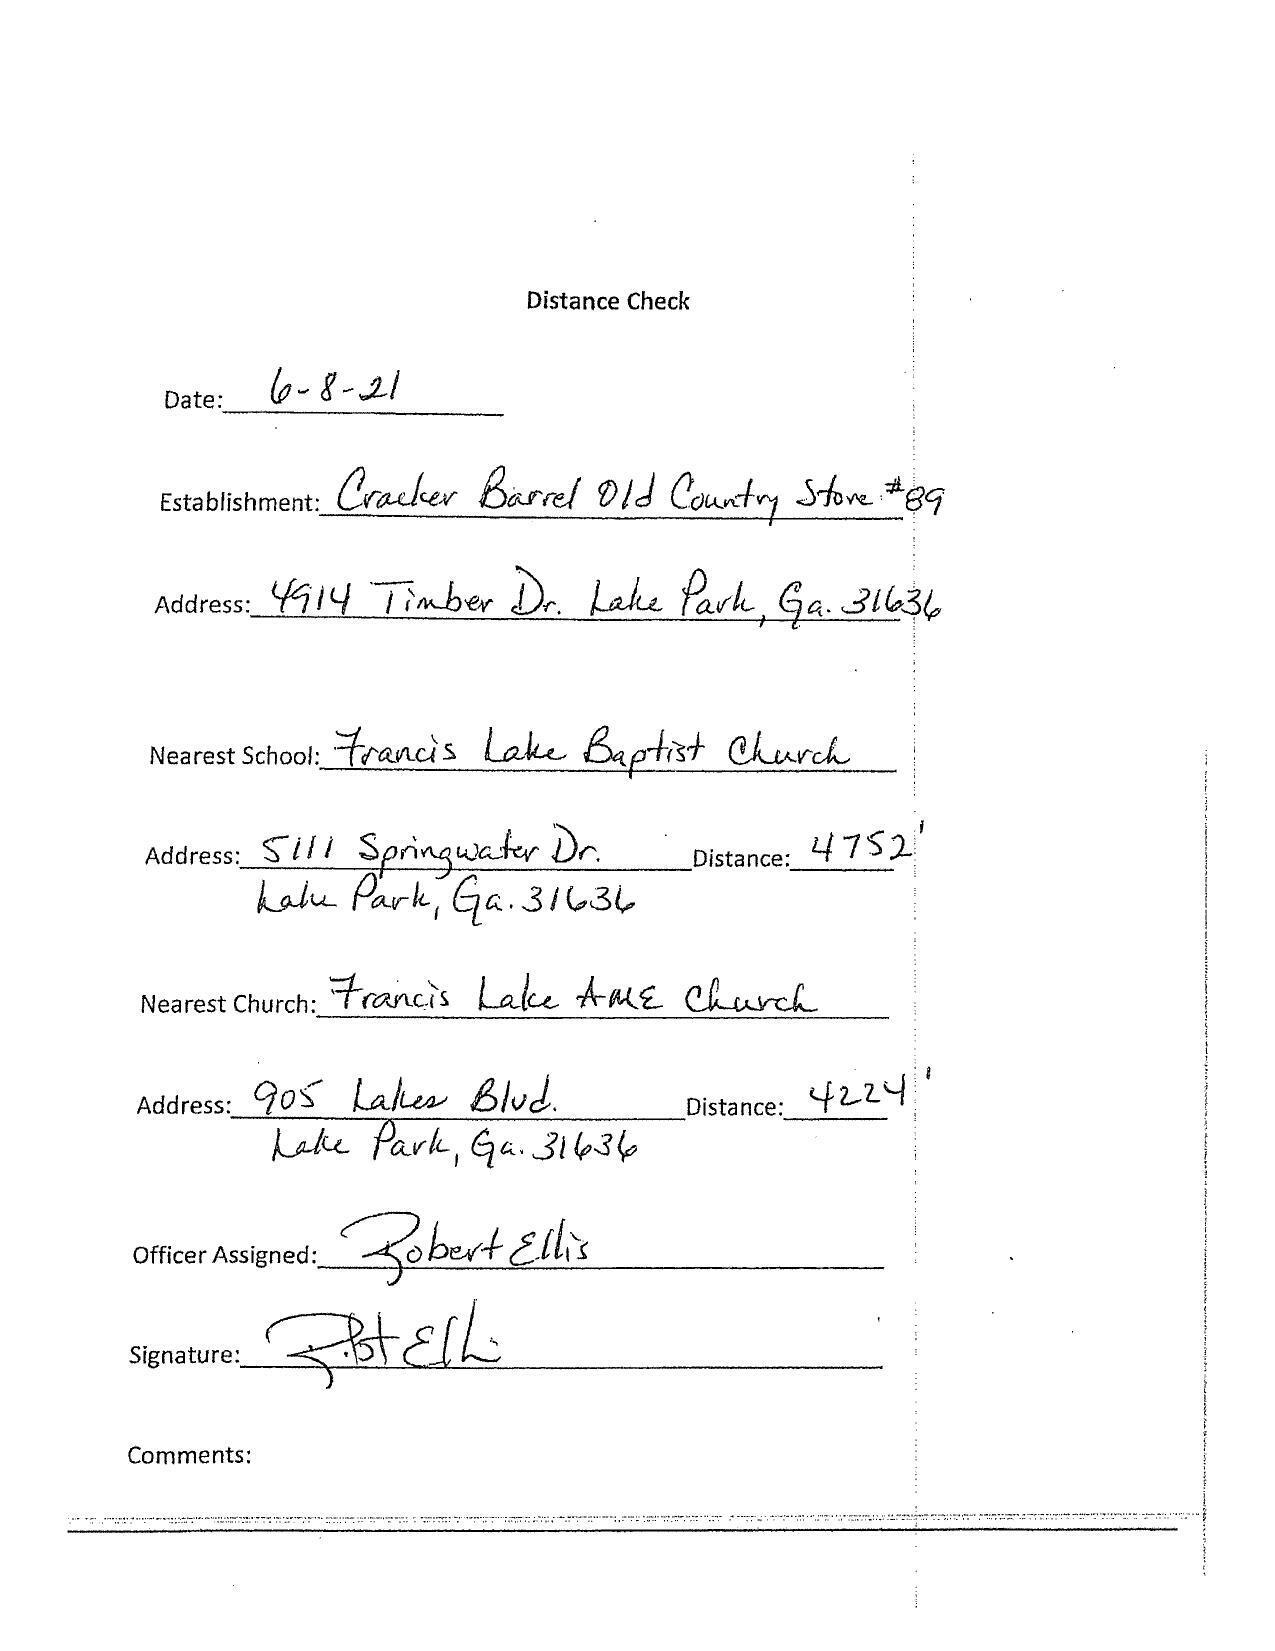 Distance Check
Date: 6-8-21
Establishment: Cracker Barrel Old Country Store #89
Address: 4914 Timber Dr. Lake Park, Ga. 31636
Nearest School: Francis Lake Baptist Church
Address: 5111 Springwater Dr. Distance: 4752'
Lake Park, Ga. 31636
Nearest Church: Francis Lake AME Church
Address: 905 Lakes Blvd. Distance: 4224'
Lake Park, Ga. 31636
Officer Assigned: Robert Ellis
Signature: Robt Elli
Comments: